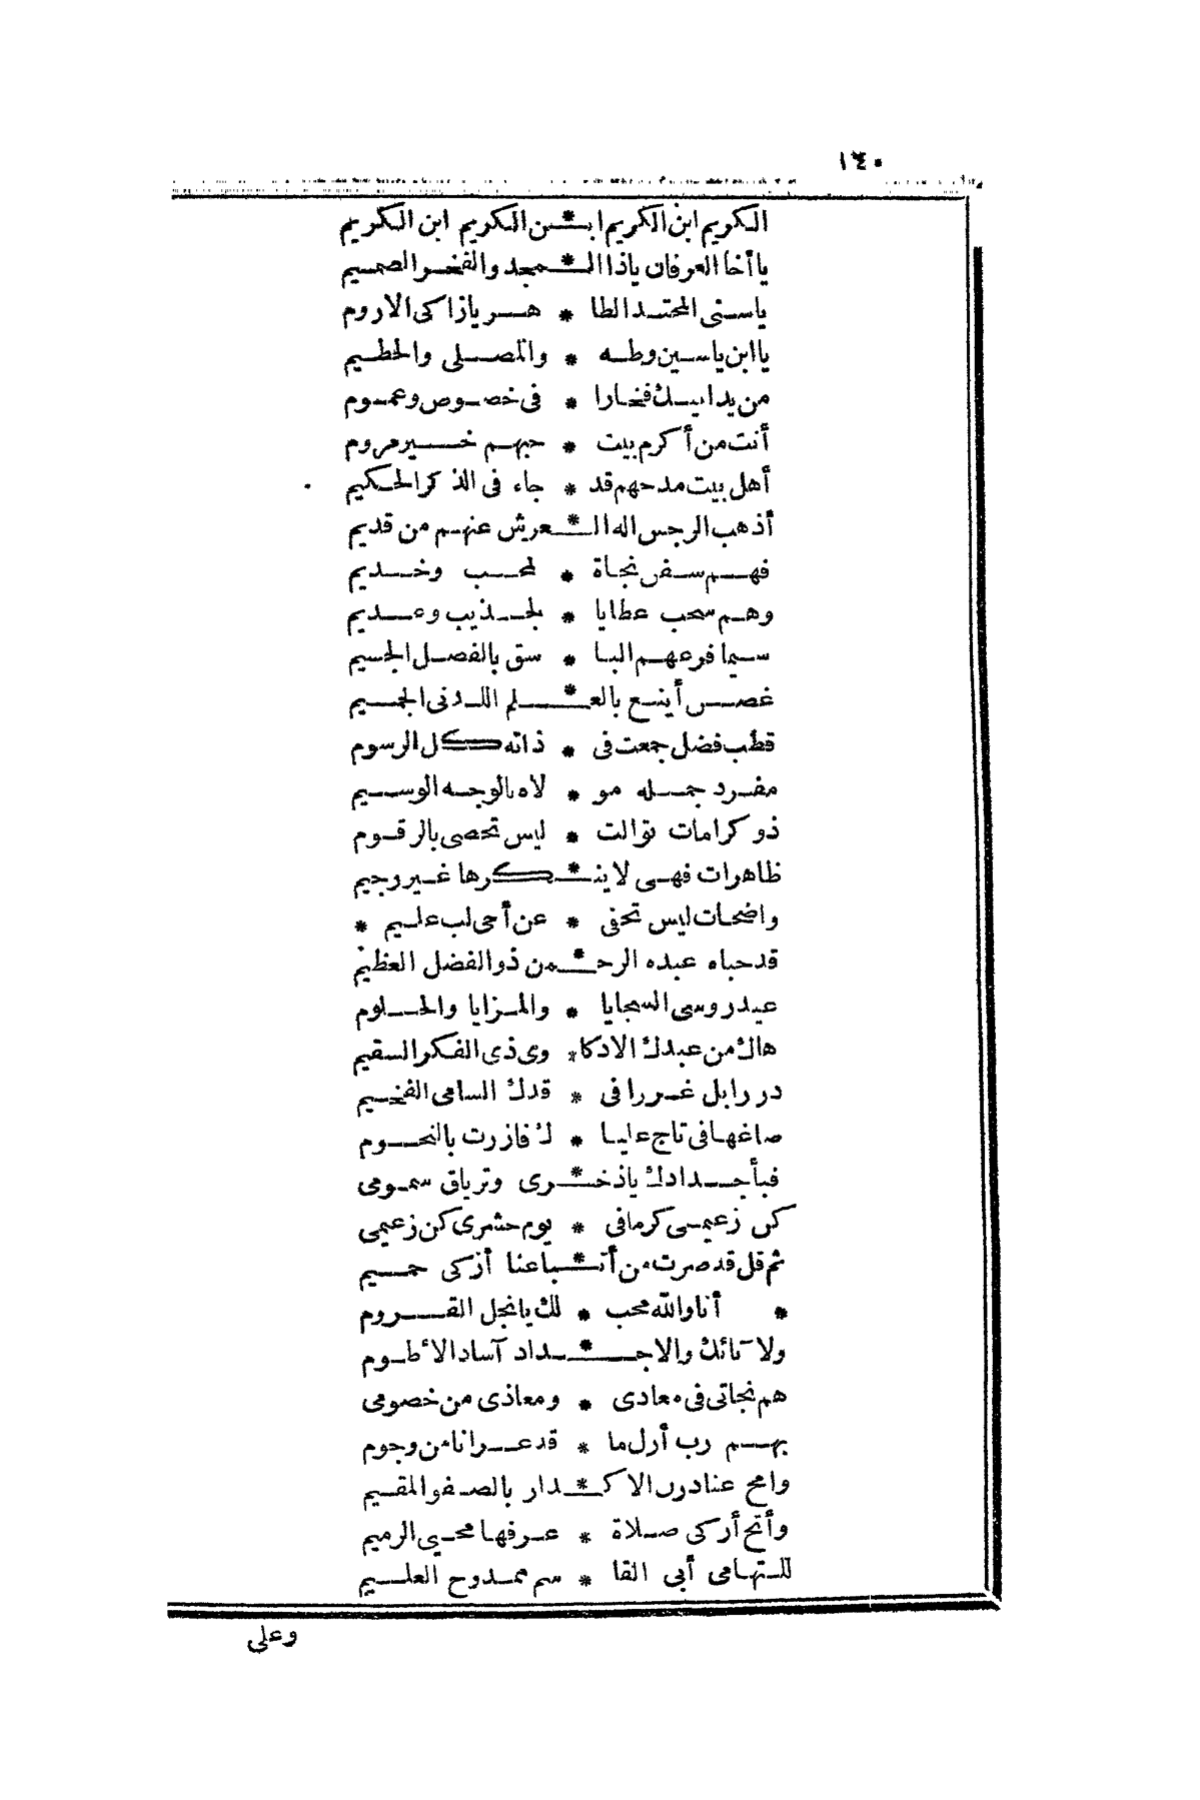 ١٤٠
الكريم ابن الكريم ابـ * ـن الكريم ابن الكريم
يا أخا العرفان ياذا الـ * ـمجد والفخر الصميم
ياسنى المحتد الطا * هر يازاكى الاروم
يا ابن ياسين وطه * والمصلى والحطيم
من يدانيك فخارا * فى خصوص وعموم
أنت من أكرم بيت * حبهم خير مروم
أهل بيت مدحهم قد * جاء فى الذكر الحكيم
أذهب الرجس اله الـ * ـعرش عنهم من قديم
فهم سفن نجاة * لمحب وخديم
وهم سحب عطايا * لجذيب وعديم
سيما فرعهم البا * سق بالفضل الجسيم
غصن أينع بالعـ * ـلم اللدنى الجميم
قطب فضل جمعت فى * ذاته كل الرسوم
مفرد جمله مو * لاه بالوجه الوسيم
ذو كرامات توالت * ليس تحصى بالرقوم
ظاهرات فهى لا ينـ * ـكرها غير وجيم
واضحات ليس تخفى * عن أخى لب عليم *
قد حباه عبده الرحـ * ـمن ذو الفضل العظيم
عيدروسى السجايا * والمزايا والحلوم
هاك من عبدك الادكا * وى ذى الفكر السقيم
دررا بل غررا فى * قدك السامى الفخيم
صاغها فى تاج عليا * ك فازرت بالنجوم
فبأجدادك ياذخـ * ـرى وترياق سمومى
كن زعيمى كرما فى * يوم حشرى كن زعيمى
ثم قل قد صرت من أتـ * ـباعنا أزكى حميم
* أنا والله محب * لك يانجل القروم
ولا آبائك والاجـ * ـداد آساد الأطوم
هم نجاتى فى معادى * ومعاذى من خصومى
بهم رب أزل ما * قد عرانا من وجوم
وامح عنا درن الاكـ * ـدار بالصفو المقيم
وأتح أزكى صلاة * عرفها محيى الرميم
للتهامى أبى القا * سم ممدوح العليم
وعلى